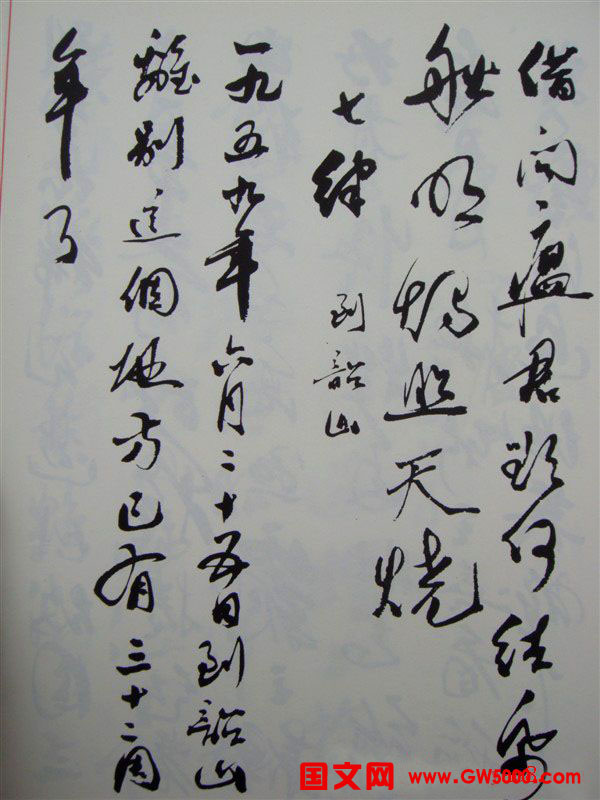 借问瘟君欲何往帋
船明烛照天烧
七律 到韶山
一九五九年六月二十五日到韶山
離别這個地方已有三十二周
年了
国文网 www.GW5000.com